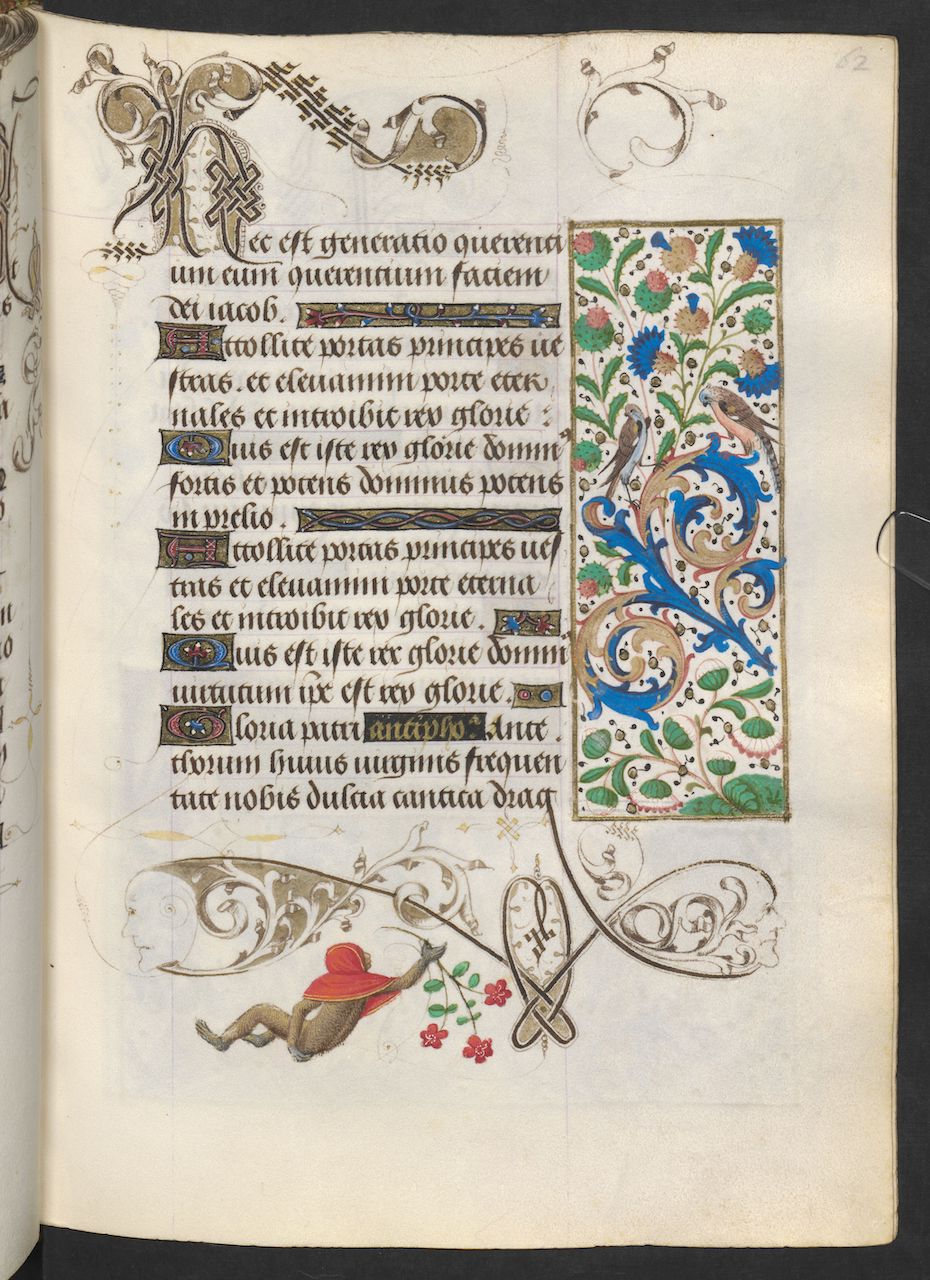 62
Hec est generatio querenci
um eum querencium faciem
dei iacob.
Attollite portas principes ue
stras. et elevamini porte eter
nales et introibit rex glorie :
Quis est iste rex glorie domin9
fortis et potens dominus potens
in prelio.
Attollite portas principes ues
tras et elevamini porte eterna
les et introibit rex glorie.
Quis est iste rex glorie domin9
uirtutum ipe est rex glorie.
Gloria patri antipho.a Ante
thorum huius uirginis frequen
tate nobis dulcia cantica drag